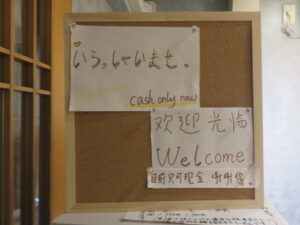 いらっしゃいませ。
cash only now
欢迎 光临
Welcome
目前只可現金，謝謝您